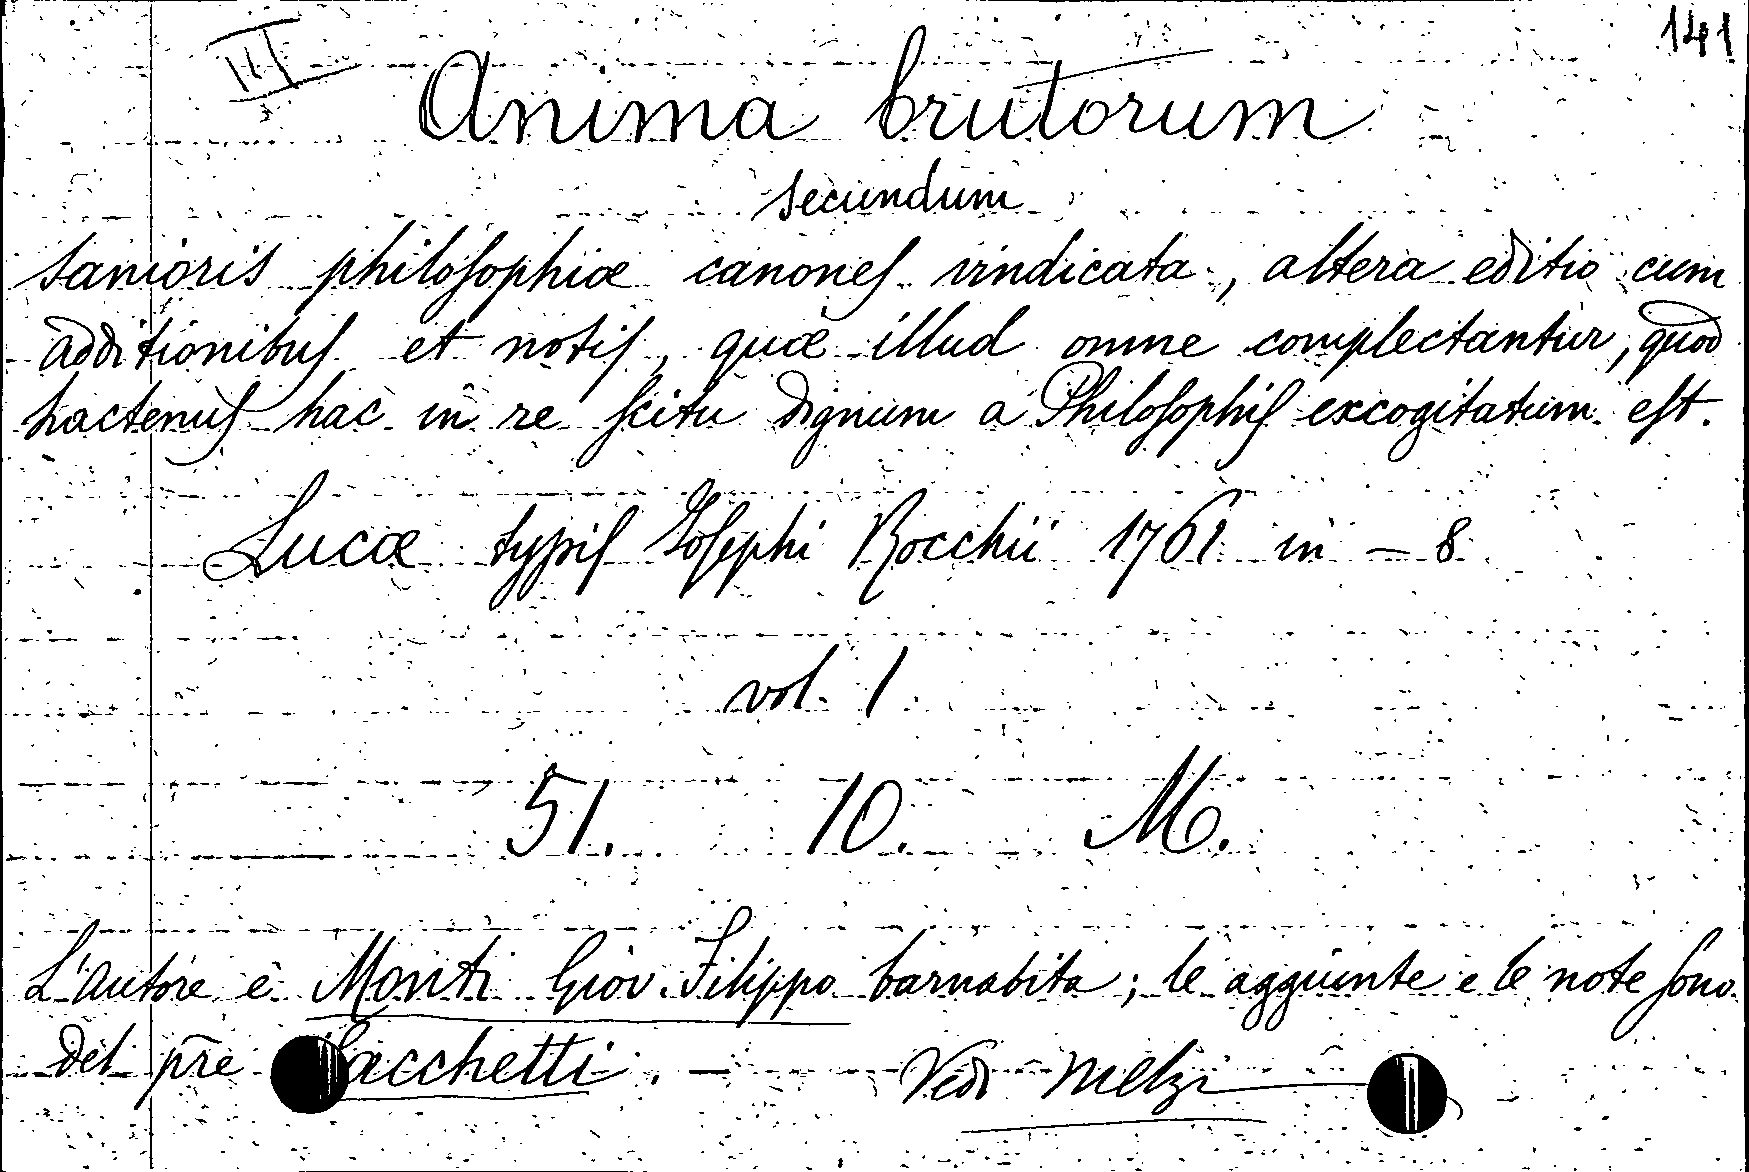 III
141
Anima brutorum
secundum
sanioris philosophiæ canones vindicata, altera editio cum
additionibus et notis, quæ illud omne complectantur, quod
hactenus hac in re scitu dignum a Philosophis excogitatum est.
Lucæ typis Josephi Rocchii 1761 in - 8
vol. 1
51. 10. M.
L'autore è Monti Giov. Filippo barnabita; le aggiunte e le note sono
del pre acchetti. — Vedi Melzi